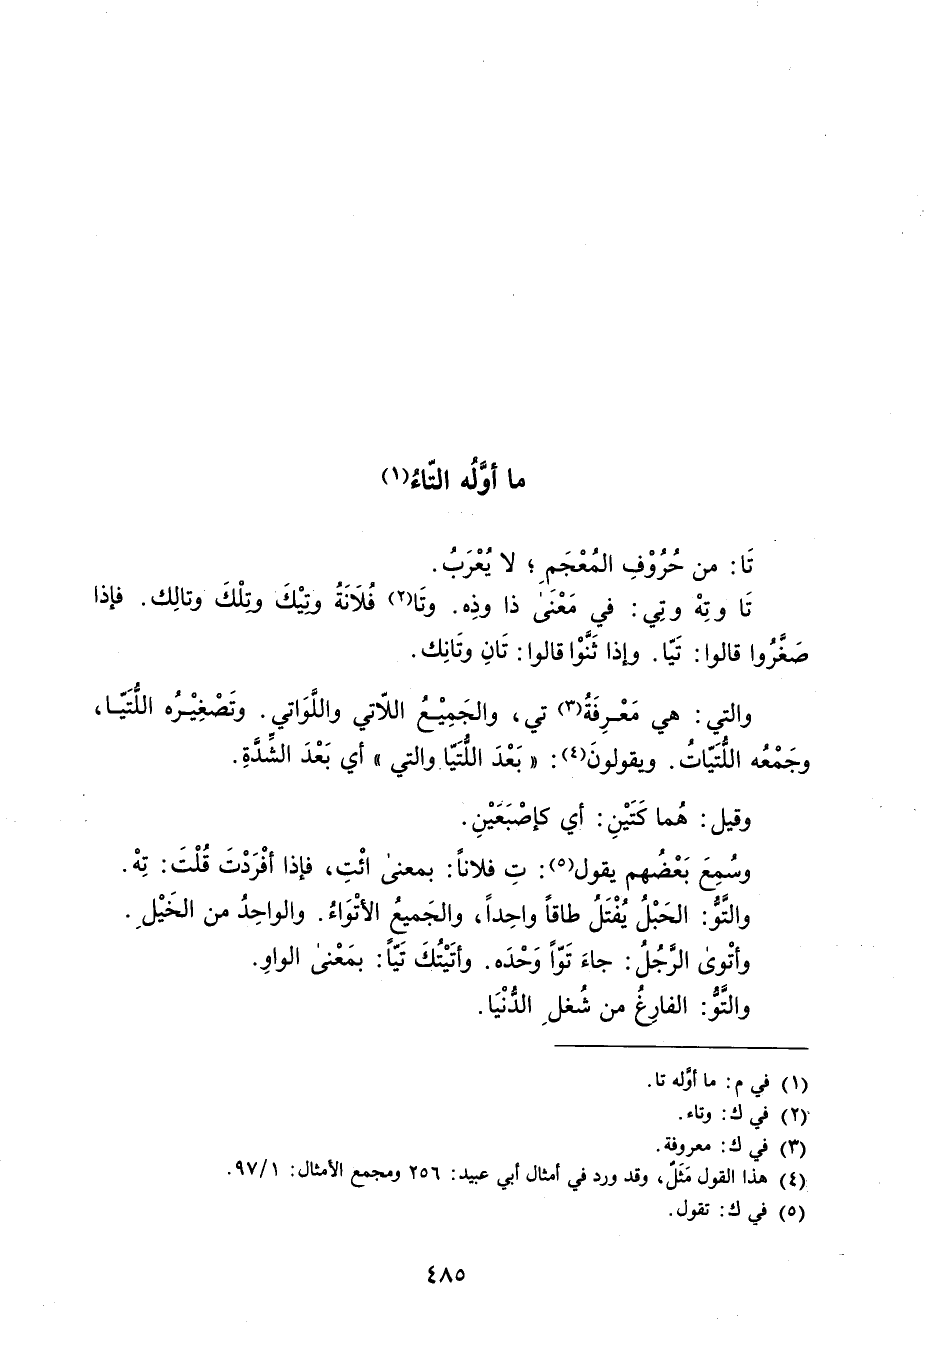 ما أوَّلُه التّاءُ(١)
تَا: من حُرُوْفِ المُعْجَمِ؛ لا يُعْرَبُ.
تَا وتِهْ وتِي: في مَعْنىٰ ذا وذِه. وتَا(٢) فُلَانَةُ وتِيْكَ وتِلْكَ وتالِك. فإذا
صَغَّرُوا قالوا: تَيّا. وإذا ثَنَّوْا قالوا: تَانِ وتَانِك.
والتي: هي مَعْرِفَةُ(٣) تي، والجَمِيْعُ اللاّتي واللَّوَاتي. وتَصْغِيْرُه اللُّتَيّا،
وجَمْعُه اللُّتَيّاتُ. ويقولونَ(٤): « بَعْدَ اللُّتَيّا والتي » أي بَعْدَ الشِّدَّةِ.
وقيل: هُما كَتَيْنِ: أي كإصْبَعَيْنِ.
وسُمِعَ بَعْضُهم يقول(٥): تِ فلاناً: بمعنىٰ ائْتِ، فإذا أفْرَدْتَ قُلْتَ: تِهْ.
والتَّوُّ: الحَبْلُ يُفْتَلُ طاقاً واحِداً، والجَميعُ الأتْوَاءُ. والواحِدُ من الخَيْلِ.
وأتْوىٰ الرَّجُلُ: جاءَ تَوّاً وَحْدَه. وأتَيْتُكَ تَيّاً: بمَعْنىٰ الواوِ.
والتَّوُّ: الفارِغُ من شُغلِ الدُّنْيَا.
(١) في م: ما أوَّله تا.
(٢) في ك: وتاء.
(٣) في ك: معروفة.
(٤) هذا القول مَثَلٌ، وقد ورد في أمثال أبي عبيد: ٢٥٦ ومجمع الأمثال: ٩٧/١.
(٥) في ك: تقول.
٤٨٥